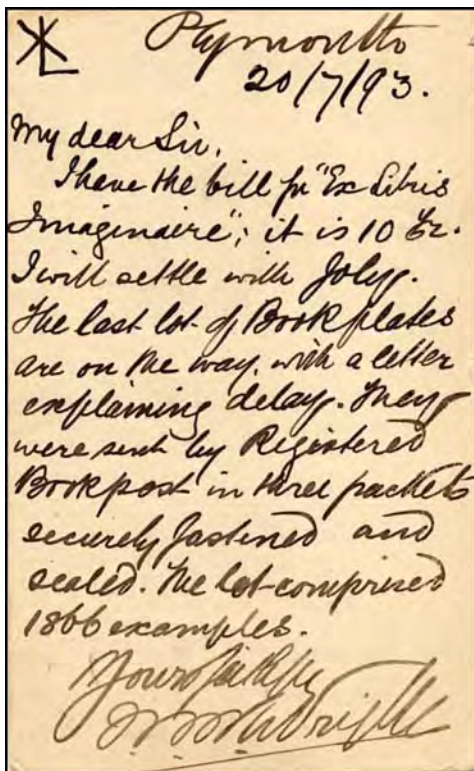 XL
Plymouth
20/7/93.
My dear Sir,
I have the bill for "Ex Libris
Imaginaire"; it is 10 Fr.
I will settle with Joly.
The last lot of Bookplates
are on the way, with a letter
explaining delay. They
were sent by Registered
Bookpost in three packets
securely fastened and
sealed. The lot comprised
1866 examples.
Yours
Wright